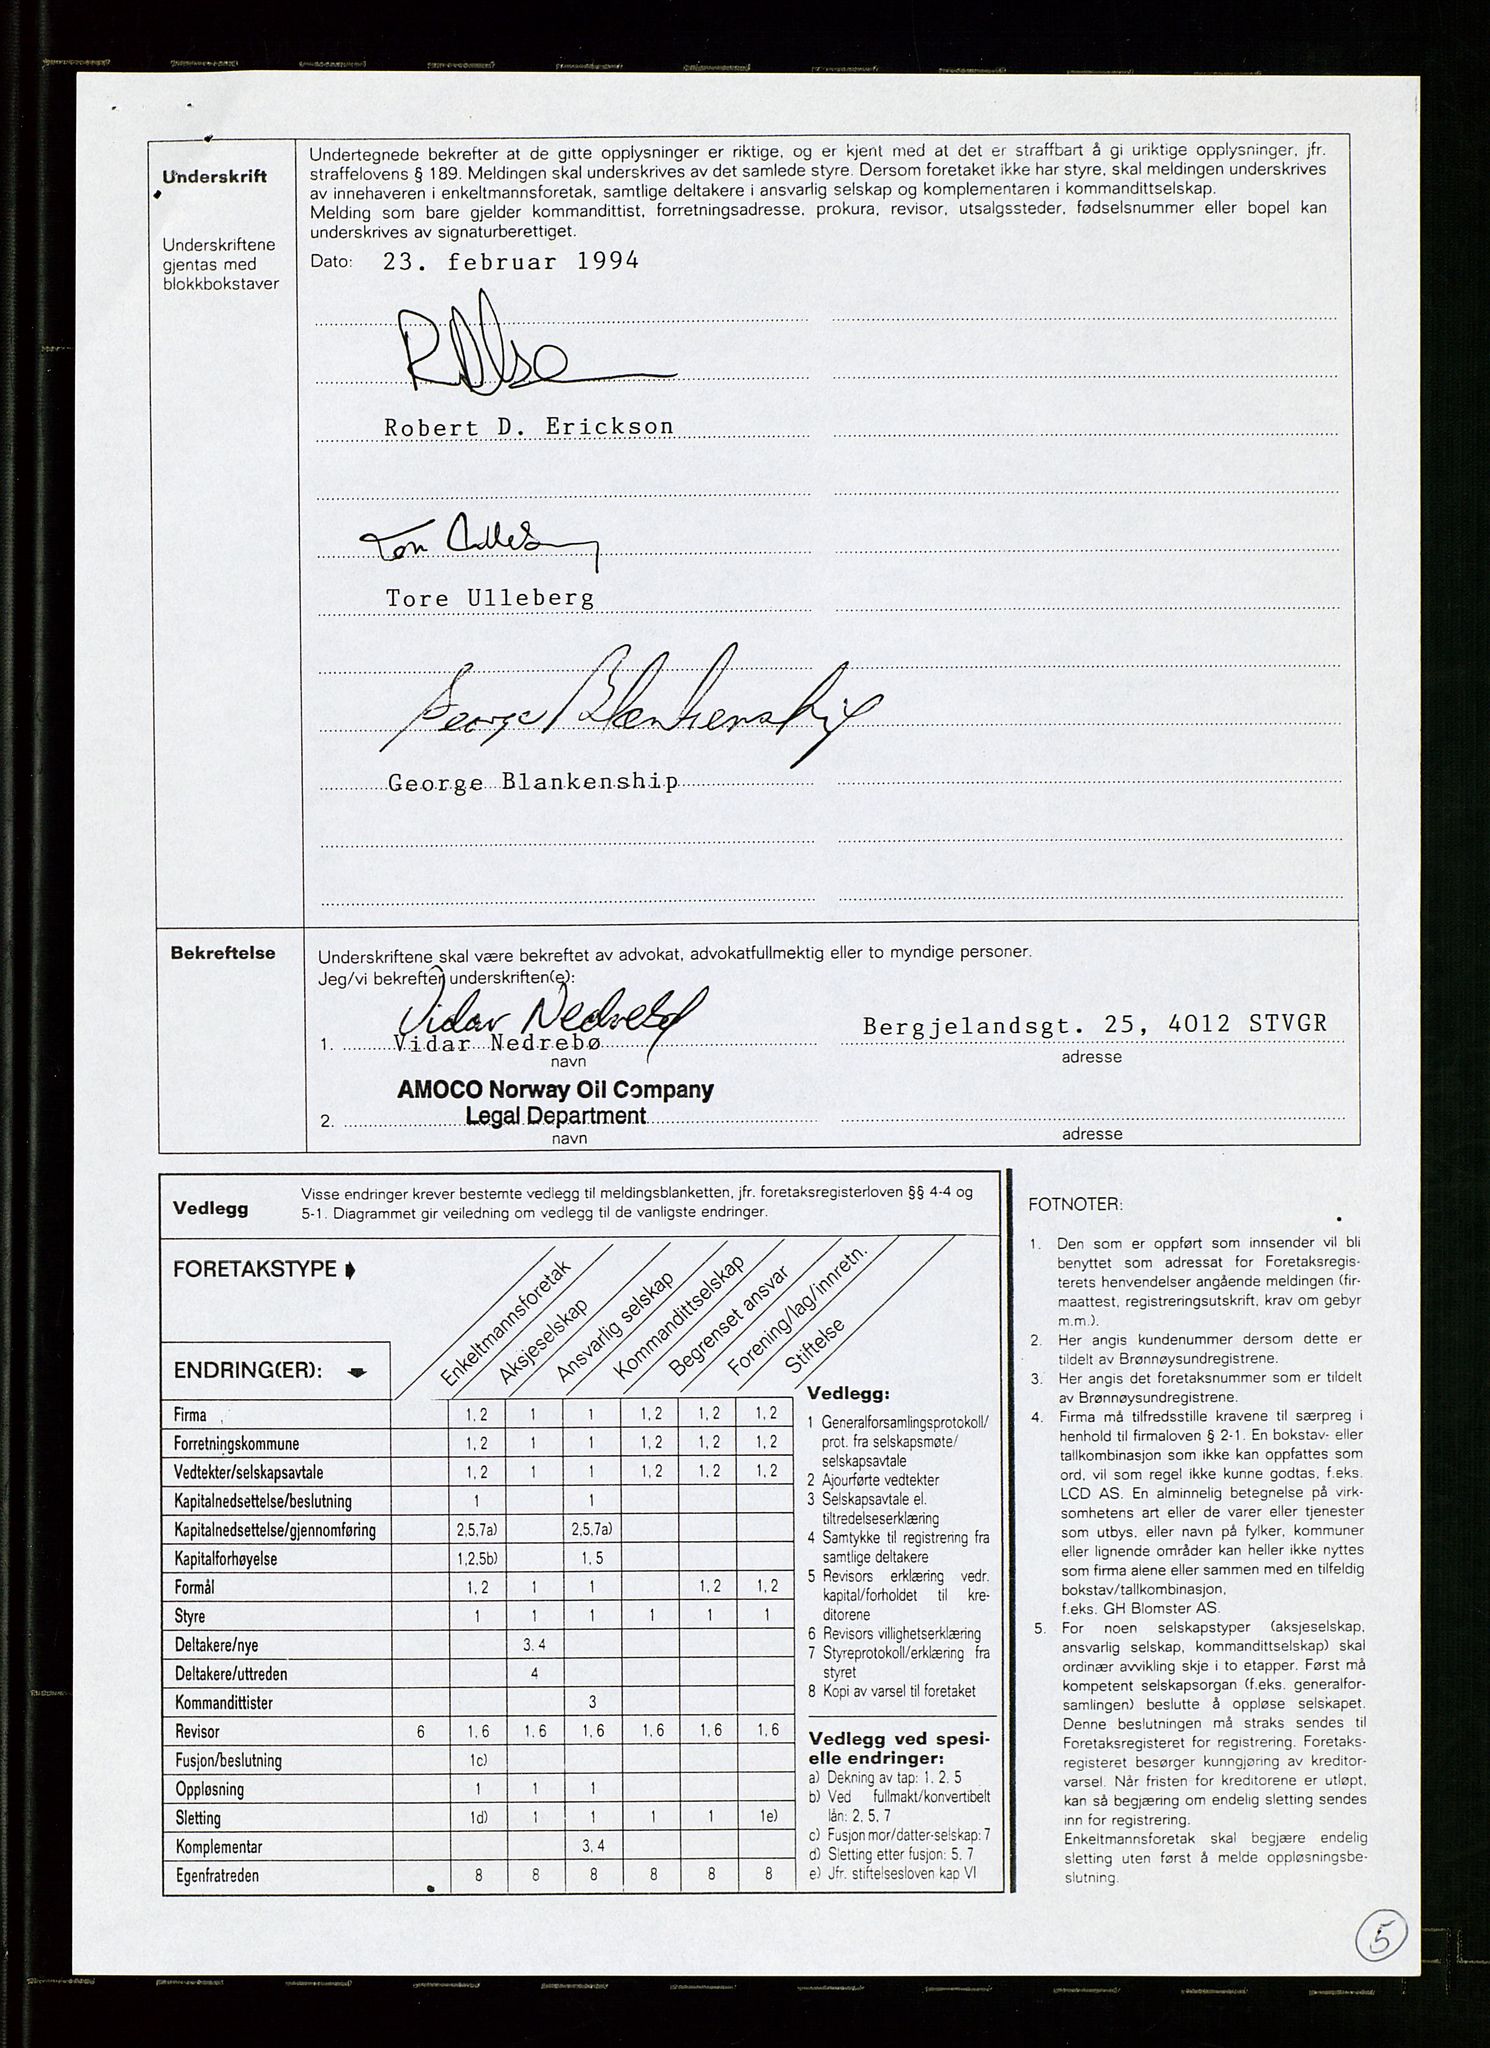 Underskrift
Underskriftene
gjentas med
blokkbokstaver
Undertegnede bekrefter at de gitte opplysninger er riktige, og er kjent med at det er straffbart å gi uriktige opplysninger, jfr.
straffelovens § 189. Meldingen skal underskrives av det samlede styre. Dersom foretaket ikke har styre, skal meldingen underskrives
av innehaveren i enkeltmannsforetak, samtlige deltakere i ansvarlig selskap og komplementaren i kommandittselskap.
Melding som bare gjelder kommandittist, forretningsadresse, prokura, revisor, utsalgssteder, fødselsnummer eller bopel kan
underskrives av signaturberettiget.
Dato: 23. februar 1994
Robert D. Erickson
Tore Ulleberg
George Blankenship
George Blankenship
Bekreftelse
Underskriftene skal være bekreftet av advokat, advokatfullmektig eller to myndige personer.
Jeg/vi bekrefter underskriften(e):
Vidar Nedrebø
1. Vidar Nedrebø Bergjelandsgt. 25, 4012 STVGR
navn adresse
AMOCO Norway Oil Company
2. Legal Department
navn adresse
Vedlegg
Visse endringer krever bestemte vedlegg til meldingsblanketten, jfr. foretaksregisterloven §§ 4-4 og
5-1. Diagrammet gir veiledning om vedlegg til de vanligste endringer.
FORETAKSTYPE
ENDRING(ER):
Enkeltmannsforetak
Aksjeselskap
Ansvarlig selskap
Kommandittselskap
Begrenset ansvar
Forening/lag/innretn.
Stiftelse
Firma 1,2 1 1 1,2 1,2 1,2
Forretningskommune 1,2 1 1 1,2 1,2 1,2
Vedtekter/selskapsavtale 1,2 1 1 1,2 1,2 1,2
Kapitalnedsettelse/beslutning 1 1
Kapitalnedsettelse/gjennomføring 2,5,7a) 2,5,7a)
Kapitalforhøyelse 1,2,5b) 1,5
Formål 1,2 1 1 1,2 1,2
Styre 1 1 1 1 1 1
Deltakere/nye 3,4
Deltakere/uttreden 4
Kommandittister 3
Revisor 6 1,6 1,6 1,6 1,6 1,6 1,6
Fusjon/beslutning 1c)
Oppløsning 1 1 1
Sletting 1d) 1 1 1 1 1e)
Komplementar 3,4
Egenfratreden 8 8 8 8 8 8
Vedlegg:
1 Generalforsamlingsprotokoll/
prot. fra selskapsmøte/
selskapsavtale
2 Ajourførte vedtekter
3 Selskapsavtale el.
tiltredelseserklæring
4 Samtykke til registrering fra
samtlige deltakere
5 Revisors erklæring vedr.
kapital/forholdet til kre-
ditorene
6 Revisors villighetserklæring
7 Styreprotokoll/erklæring fra
styret
8 Kopi av varsel til foretaket
Vedlegg ved spesi-
elle endringer:
a) Dekning av tap: 1, 2, 5
b) Ved fullmakt/konvertibelt
lån: 2, 5, 7
c) Fusjon mor/datter-selskap: 7
d) Sletting etter fusjon: 5, 7
e) Jfr. stiftelsesloven kap VI
FOTNOTER:
1. Den som er oppført som innsender vil bli
benyttet som adressat for Foretaksregis-
terets henvendelser angående meldingen (fir-
maattest, registreringsutskrift, krav om gebyr
m.m.).
2. Her angis kundenummer dersom dette er
tildelt av Brønnøysundregistrene.
3. Her angis det foretaksnummer som er tildelt
av Brønnøysundregistrene.
4. Firma må tilfredsstille kravene til særpreg i
henhold til firmaloven § 2-1. En bokstav- eller
tallkombinasjon som ikke kan oppfattes som
ord, vil som regel ikke kunne godtas, f.eks.
LCD AS. En alminnelig betegnelse på virk-
somhetens art eller de varer eller tjenester
som utbys, eller navn på fylker, kommuner
eller lignende områder kan heller ikke nyttes
som firma alene eller sammen med en tilfeldig
bokstav/tallkombinasjon,
f.eks. GH Blomster AS.
5. For noen selskapstyper (aksjeselskap,
ansvarlig selskap, kommandittselskap) skal
ordinær avvikling skje i to etapper. Først må
kompetent selskapsorgan (f.eks. generalfor-
samlingen) beslutte å oppløse selskapet.
Denne beslutningen må straks sendes til
Foretaksregisteret for registrering. Foretaks-
registeret besørger kunngjøring av kreditor-
varsel. Når fristen for kreditorene er utløpt,
kan så begjæring om endelig sletting sendes
inn for registrering.
Enkeltmannsforetak skal begjære endelig
sletting uten først å melde oppløsningsbe-
slutning.
5